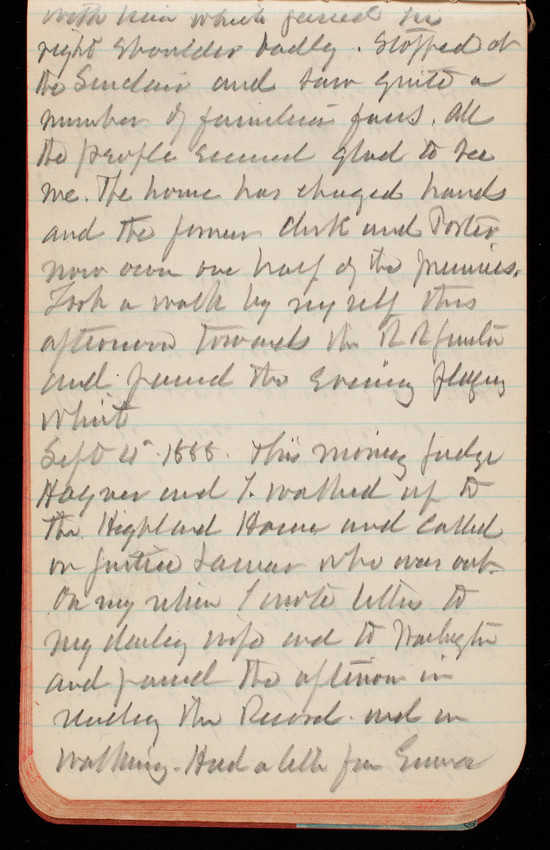 with him which pained his
right shoulder badly. Stopped at
the Sinclair and saw quite a
number of familiar faces. All
the people seemed glad to see
me. The house has changed hands
and the former clerk and Porter
now own one half of the premises.
Took a walk by myself this
afternoon towards the R R
and passed the evening playing
whist
Sept 1888. This morning Judge
Hagner and I walked up to
the Highland House and called
on Justice Lamar who was out.
On my return I wrote letters to
my darling wife and to Washington
and passed the afternoon in
reading the Record and in
walking. Had a letter from Emma